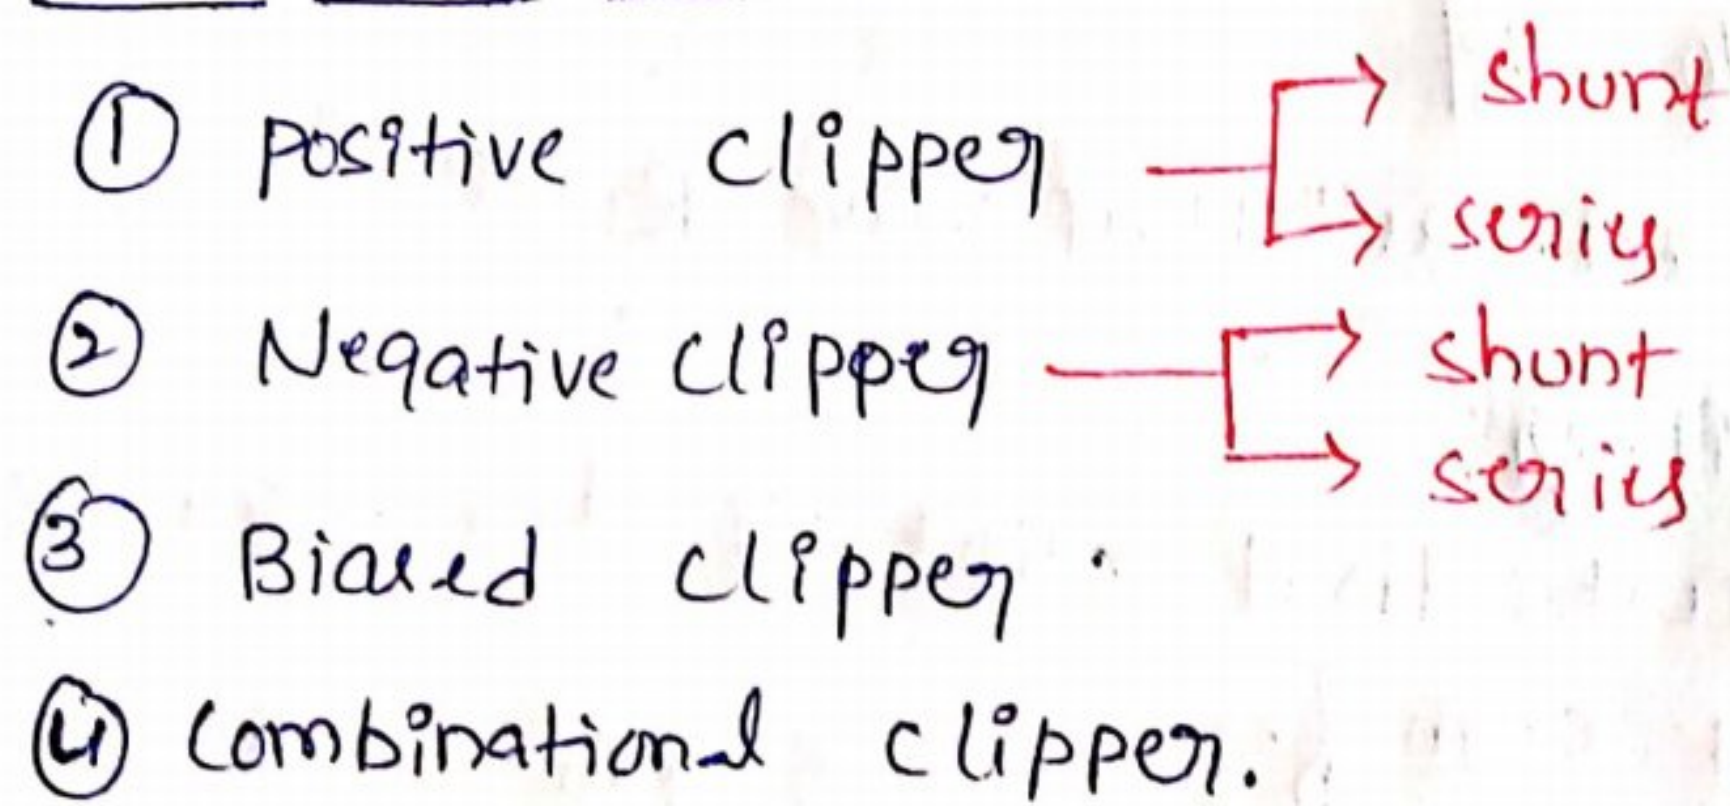 ① positive clipper → shunt
→ series
② Negative clipper → shunt
→ series
③ Biased clipper
④ combinational clipper.